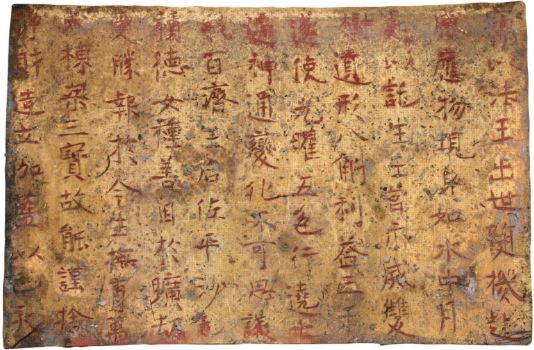 以法王出世隨機赴
應物現身如水中月
是以託生王宮示滅雙
樹遺形八斛利益三千
遂使光曜五色行遶七
遍神通變化不可思議
我百濟王后佐平沙乇
積德女種善因於曠劫
受勝報於今生撫育萬
民棟梁三寶故能謹捨
淨財造立伽藍以己亥